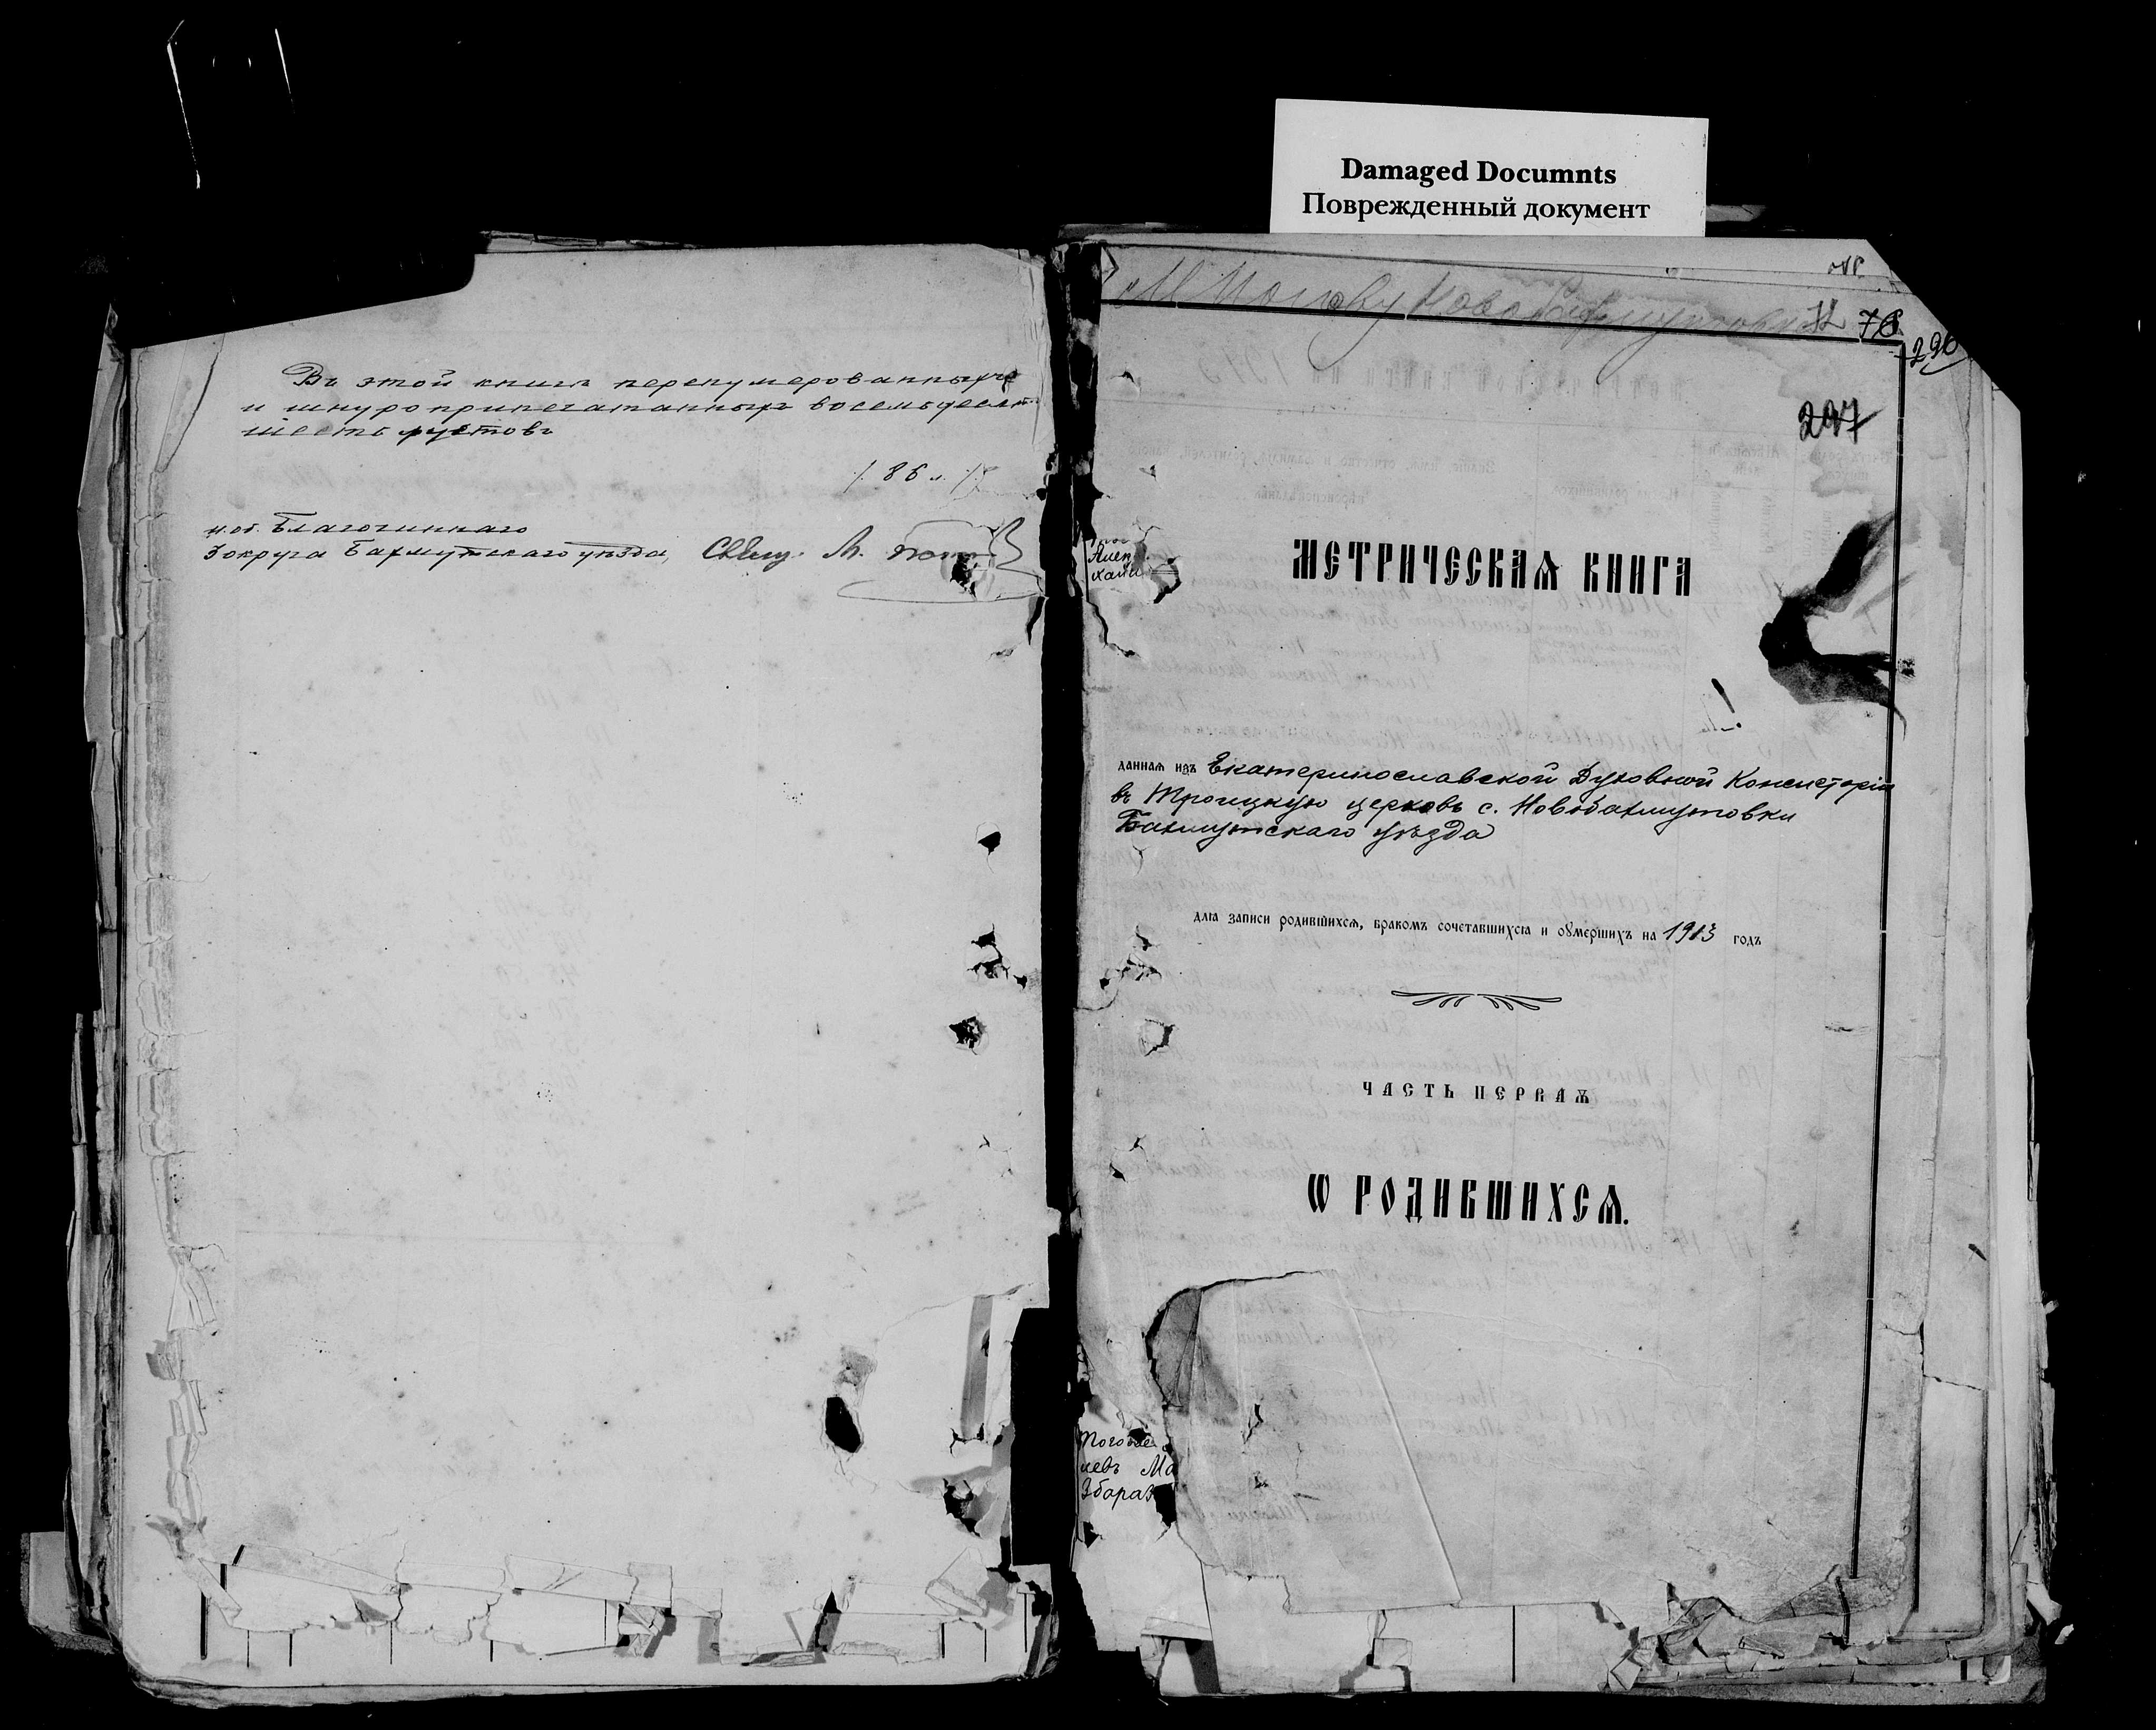 Damaged Documnts
Поврежденный документ
Въ этой книгѣ перенумерованныхъ
и шнуроприпечатанныхъ восемьдесятъ
шесть листовъ
/. 86 л. /.
и. об. Благочиннаго
3 округа Бахмутскаго уѣзда, Свящ. М.
76
296
297
МЕТРИЧЕСКАЯ КНИГА
данная изъ Екатеринославской Духовной Консисторіи
въ Троицкую церковь с. Новобахмутовки
Бахмутскаго уѣзда
для записи родившихся, бракомъ сочетавшихся и оумершихъ на 1913 годъ
ЧАСТЬ ПЕРВАЯ
Ѡ РОДИВШИХСЯ.
левъ Ма
Збараж